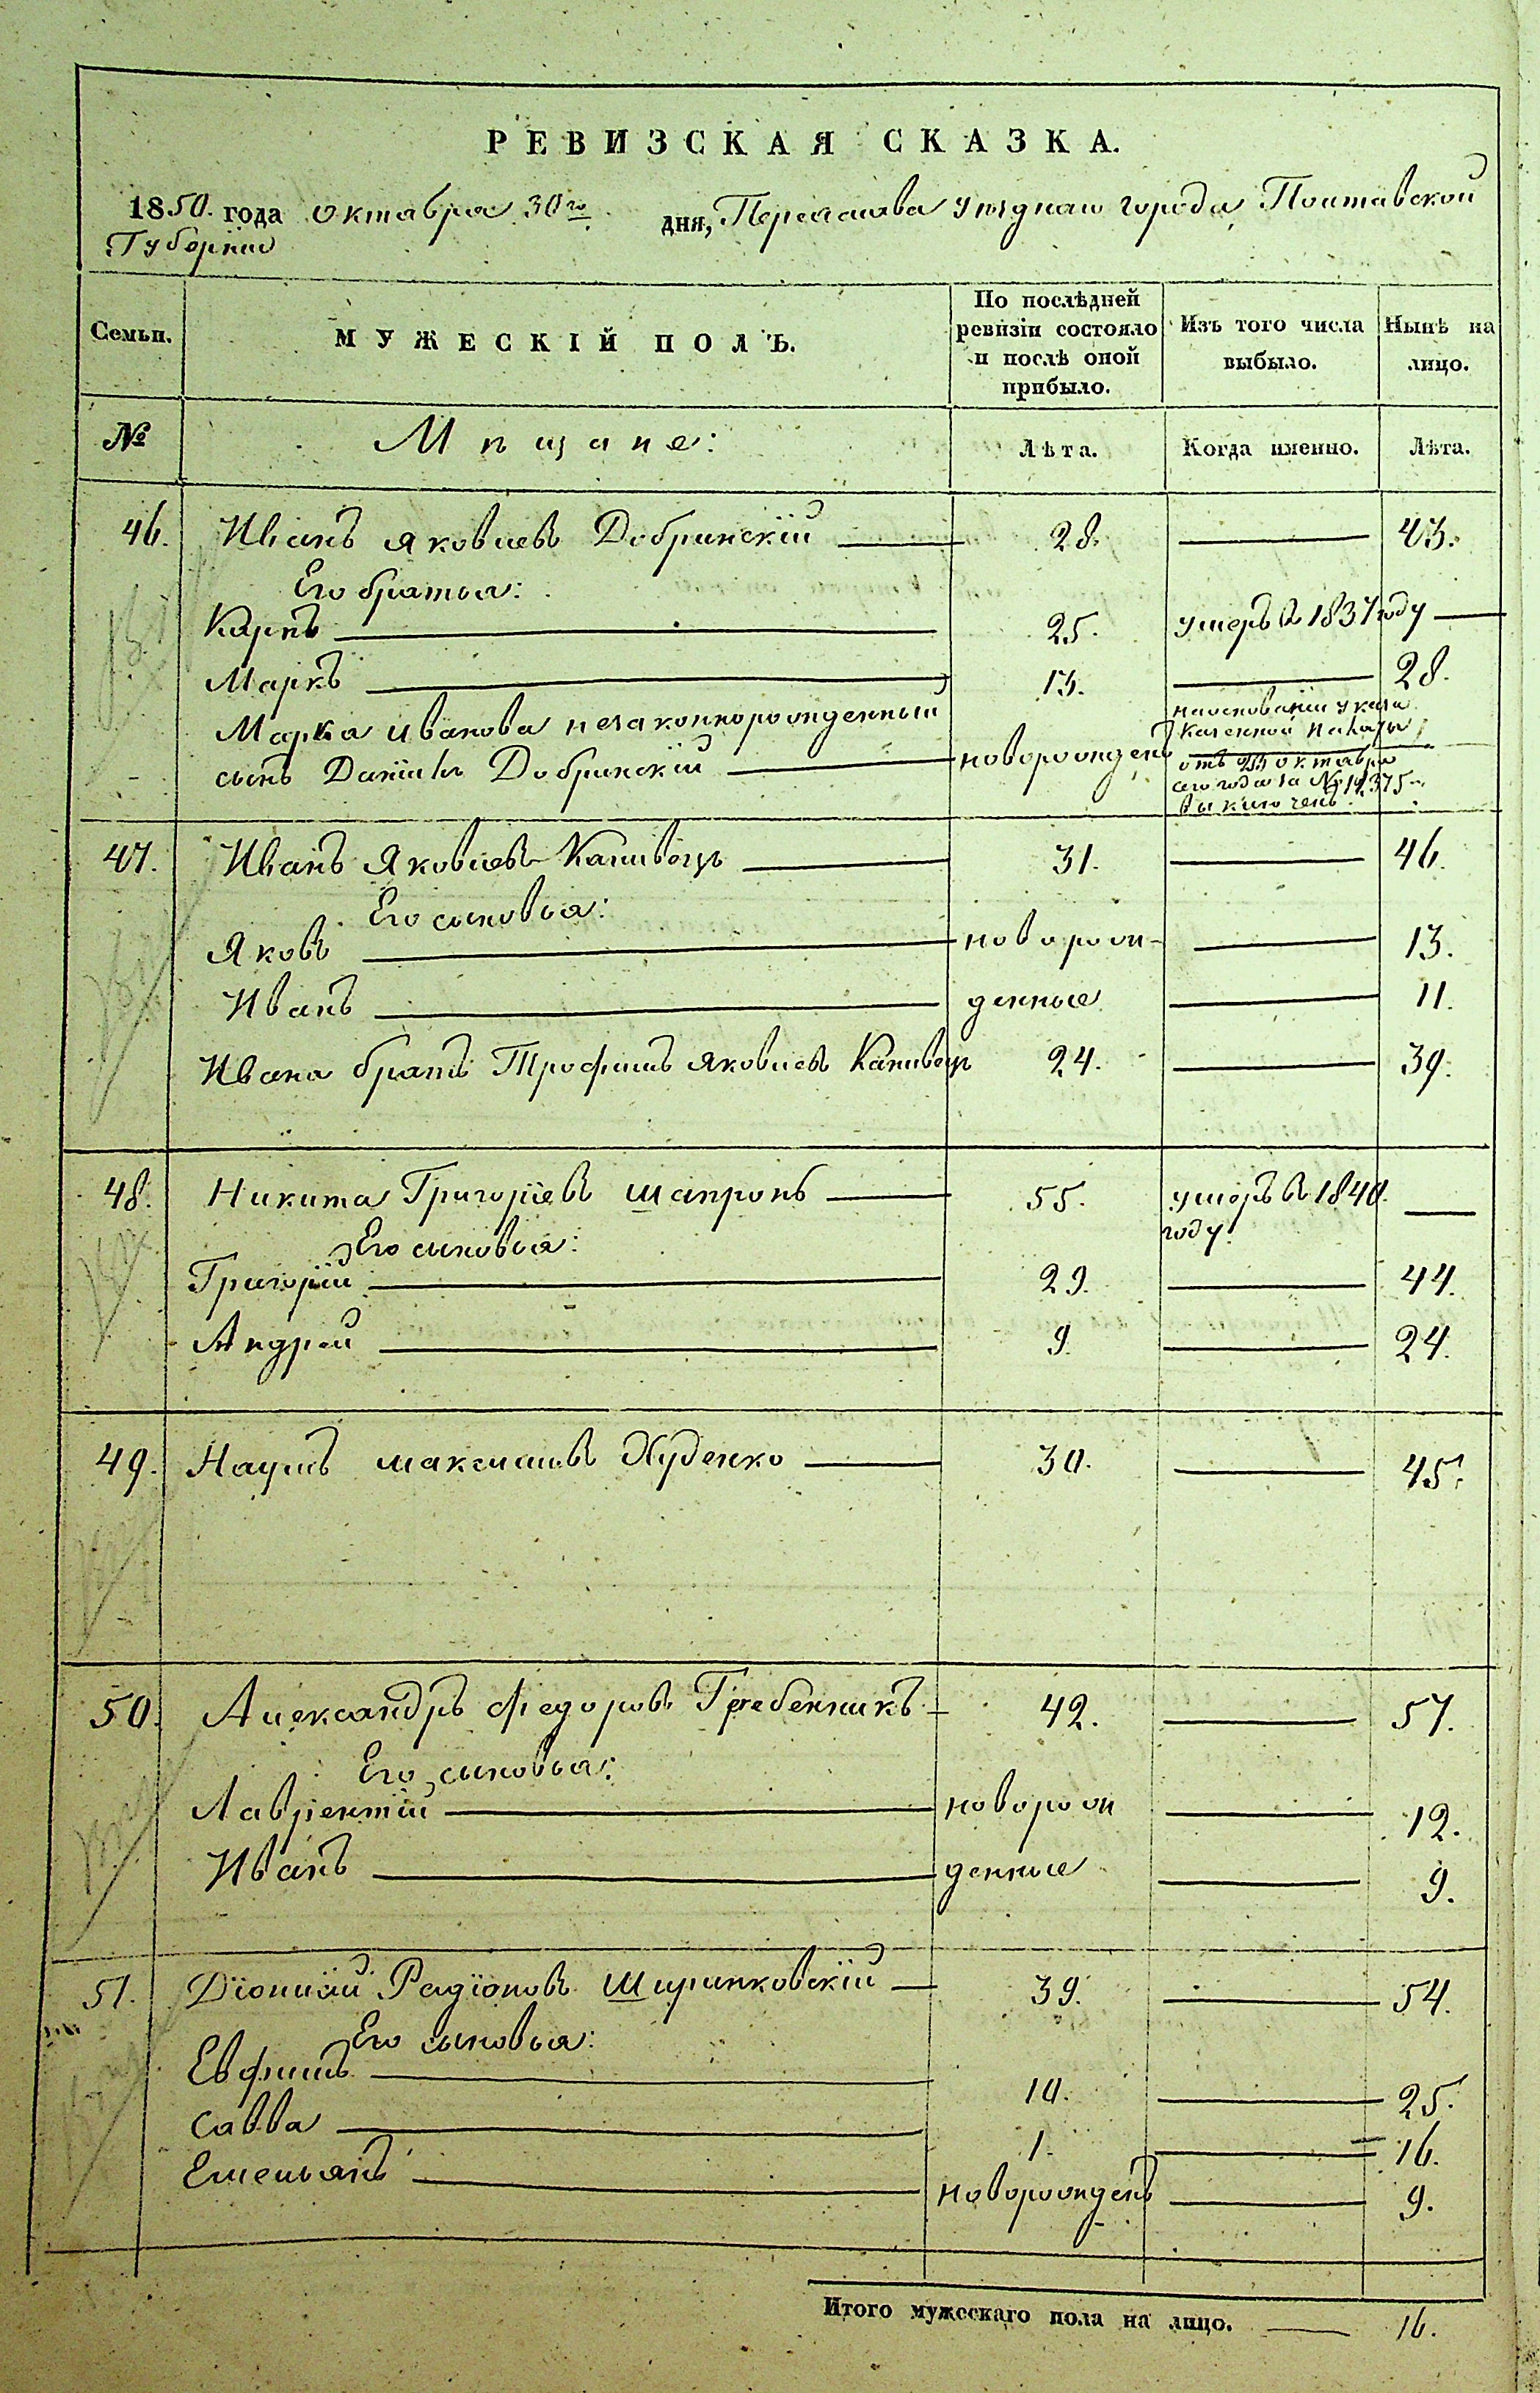 РЕВИЗСКАЯ СКАЗКА.
1850. года октября 30го дня, Переяслава уѣзднаго города Полтавской
Губерніи
Семьи.
МУЖЕСКІЙ ПОЛЪ.
По послѣдней ревизіи состояло и послѣ оной прибыло.
Изъ того числа выбыло.
Нынѣ на лицо.
№
Мѣщане:
Лѣта.
Когда именно.
Лѣта.
46. Иванъ Яковлевъ Добринскій — 28. — 43.
Его братья:
Карпъ — 25. умеръ в 1837 году —
Маркъ — 13. — 28.
Марка Иванова незаконнорожденный
сынъ Даніилъ Добринскій — новорожденъ
на основаніи указа
Казенной Палаты
отъ октября
сего года за № 19375
выключенъ.
47. Иванъ Яковлевъ Капивецъ — 31. — 46.
Его сыновья:
Яковъ — новорож- — 13.
Иванъ — денные — 11.
Ивана братъ Трофимъ Яковлевъ Капивецъ 24. — 39.
48. Никита Григоріевъ Шапронъ — 55. умеръ в 1840. —
году.
Его сыновья:
Григорій — 29. — 44.
Андрей — 9. — 24.
49. Наумъ Максимовъ Худенко — 30. — 45.
50. Александръ Федоровъ Гребенникъ — 42. — 57.
Его сыновья:
Лаврентій — новорож — 12.
Иванъ — денные — 9.
51. Діонисій Радіоновъ Ширинковскій — 39. — 54.
Его сыновья:
Евфимъ — 10. — 25.
Савва — 1. — 16.
Емельянъ — новорожденъ — 9.
Итого мужескаго пола на лицо. — 16.